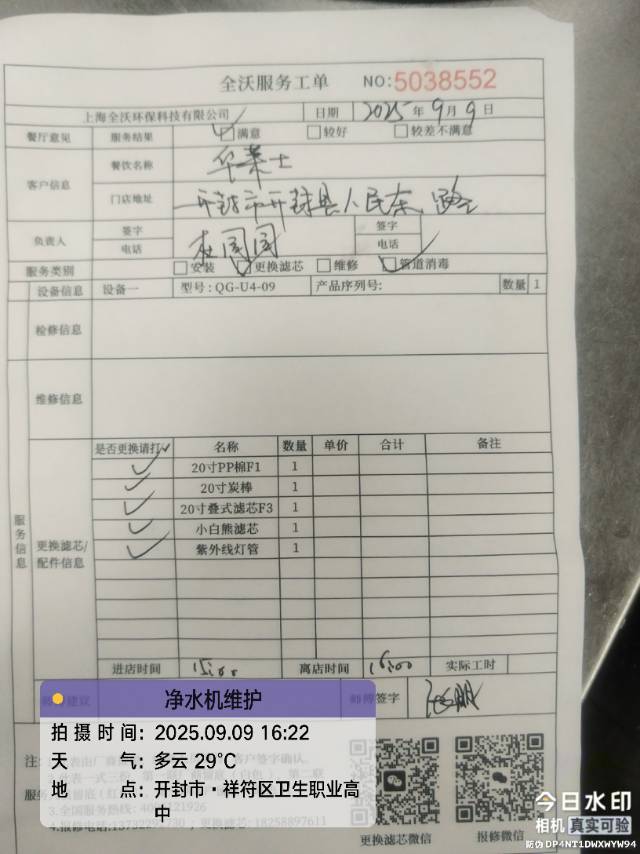 全沃服务工单 NO:5038552
上海全沃环保科技有限公司 日期 2025年9月9日
餐厅意见 服务结果 ☑满意 □较好 □较差不满意
客户信息 餐饮名称 华莱士
门店地址 开封市开封县人民东路
负责人 签字 杜圆圆 签字
电话 电话
服务类别 □安装 ☑更换滤芯 □维修 ☑管道消毒
设备信息 设备一 型号:QG-U4-09 产品序列号: 数量 1
检修信息
维修信息
服务信息
更换滤芯/配件信息
是否更换请打✓ 名称 数量 单价 合计 备注
✓ 20寸PP棉F1 1
✓ 20寸炭棒 1
✓ 20寸叠式滤芯F3 1
✓ 小白熊滤芯 1
✓ 紫外线灯管 1
进店时间 15:00 离店时间 16:00 实际工时
签字
净水机维护
拍摄时间: 2025.09.09 16:22
天 气: 多云 29°C
地 点: 开封市·祥符区卫生职业高中
更换滤芯微信 报修微信
今日水印
相机 真实可验
防伪 DP4NT1DWXWYW94